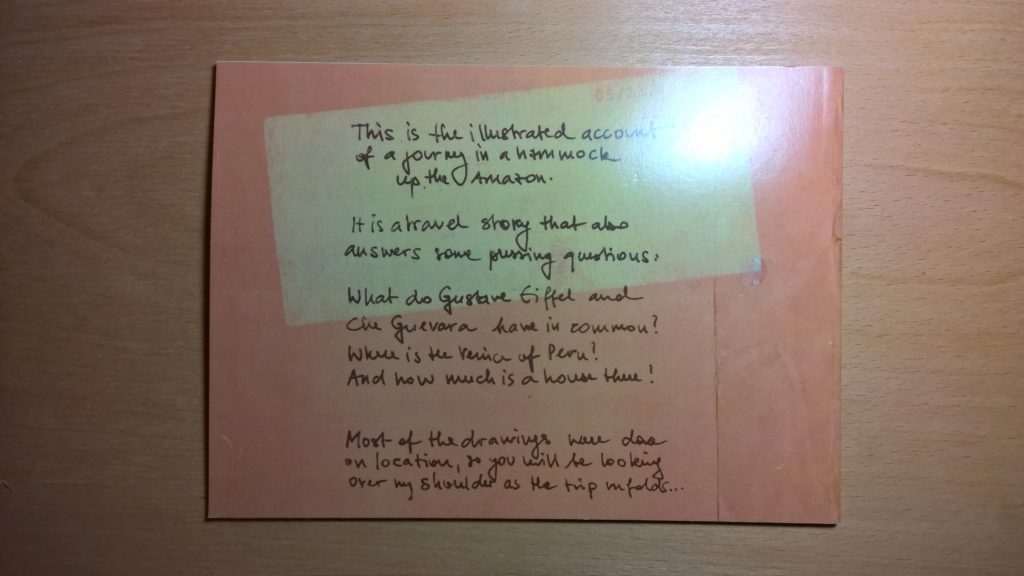 03/13
This is the illustrated account
of a journy in a hammock
up the Amazon.
It is a travel story that also
answers some pressing questions:
What do Gustave Eiffel and
Che Guevara have in common?
Where is the Venica of Peru?
And how much is a house there!
Most of the drawings were done
on location, so you will be looking
over my shoulder as the trip unfolds...